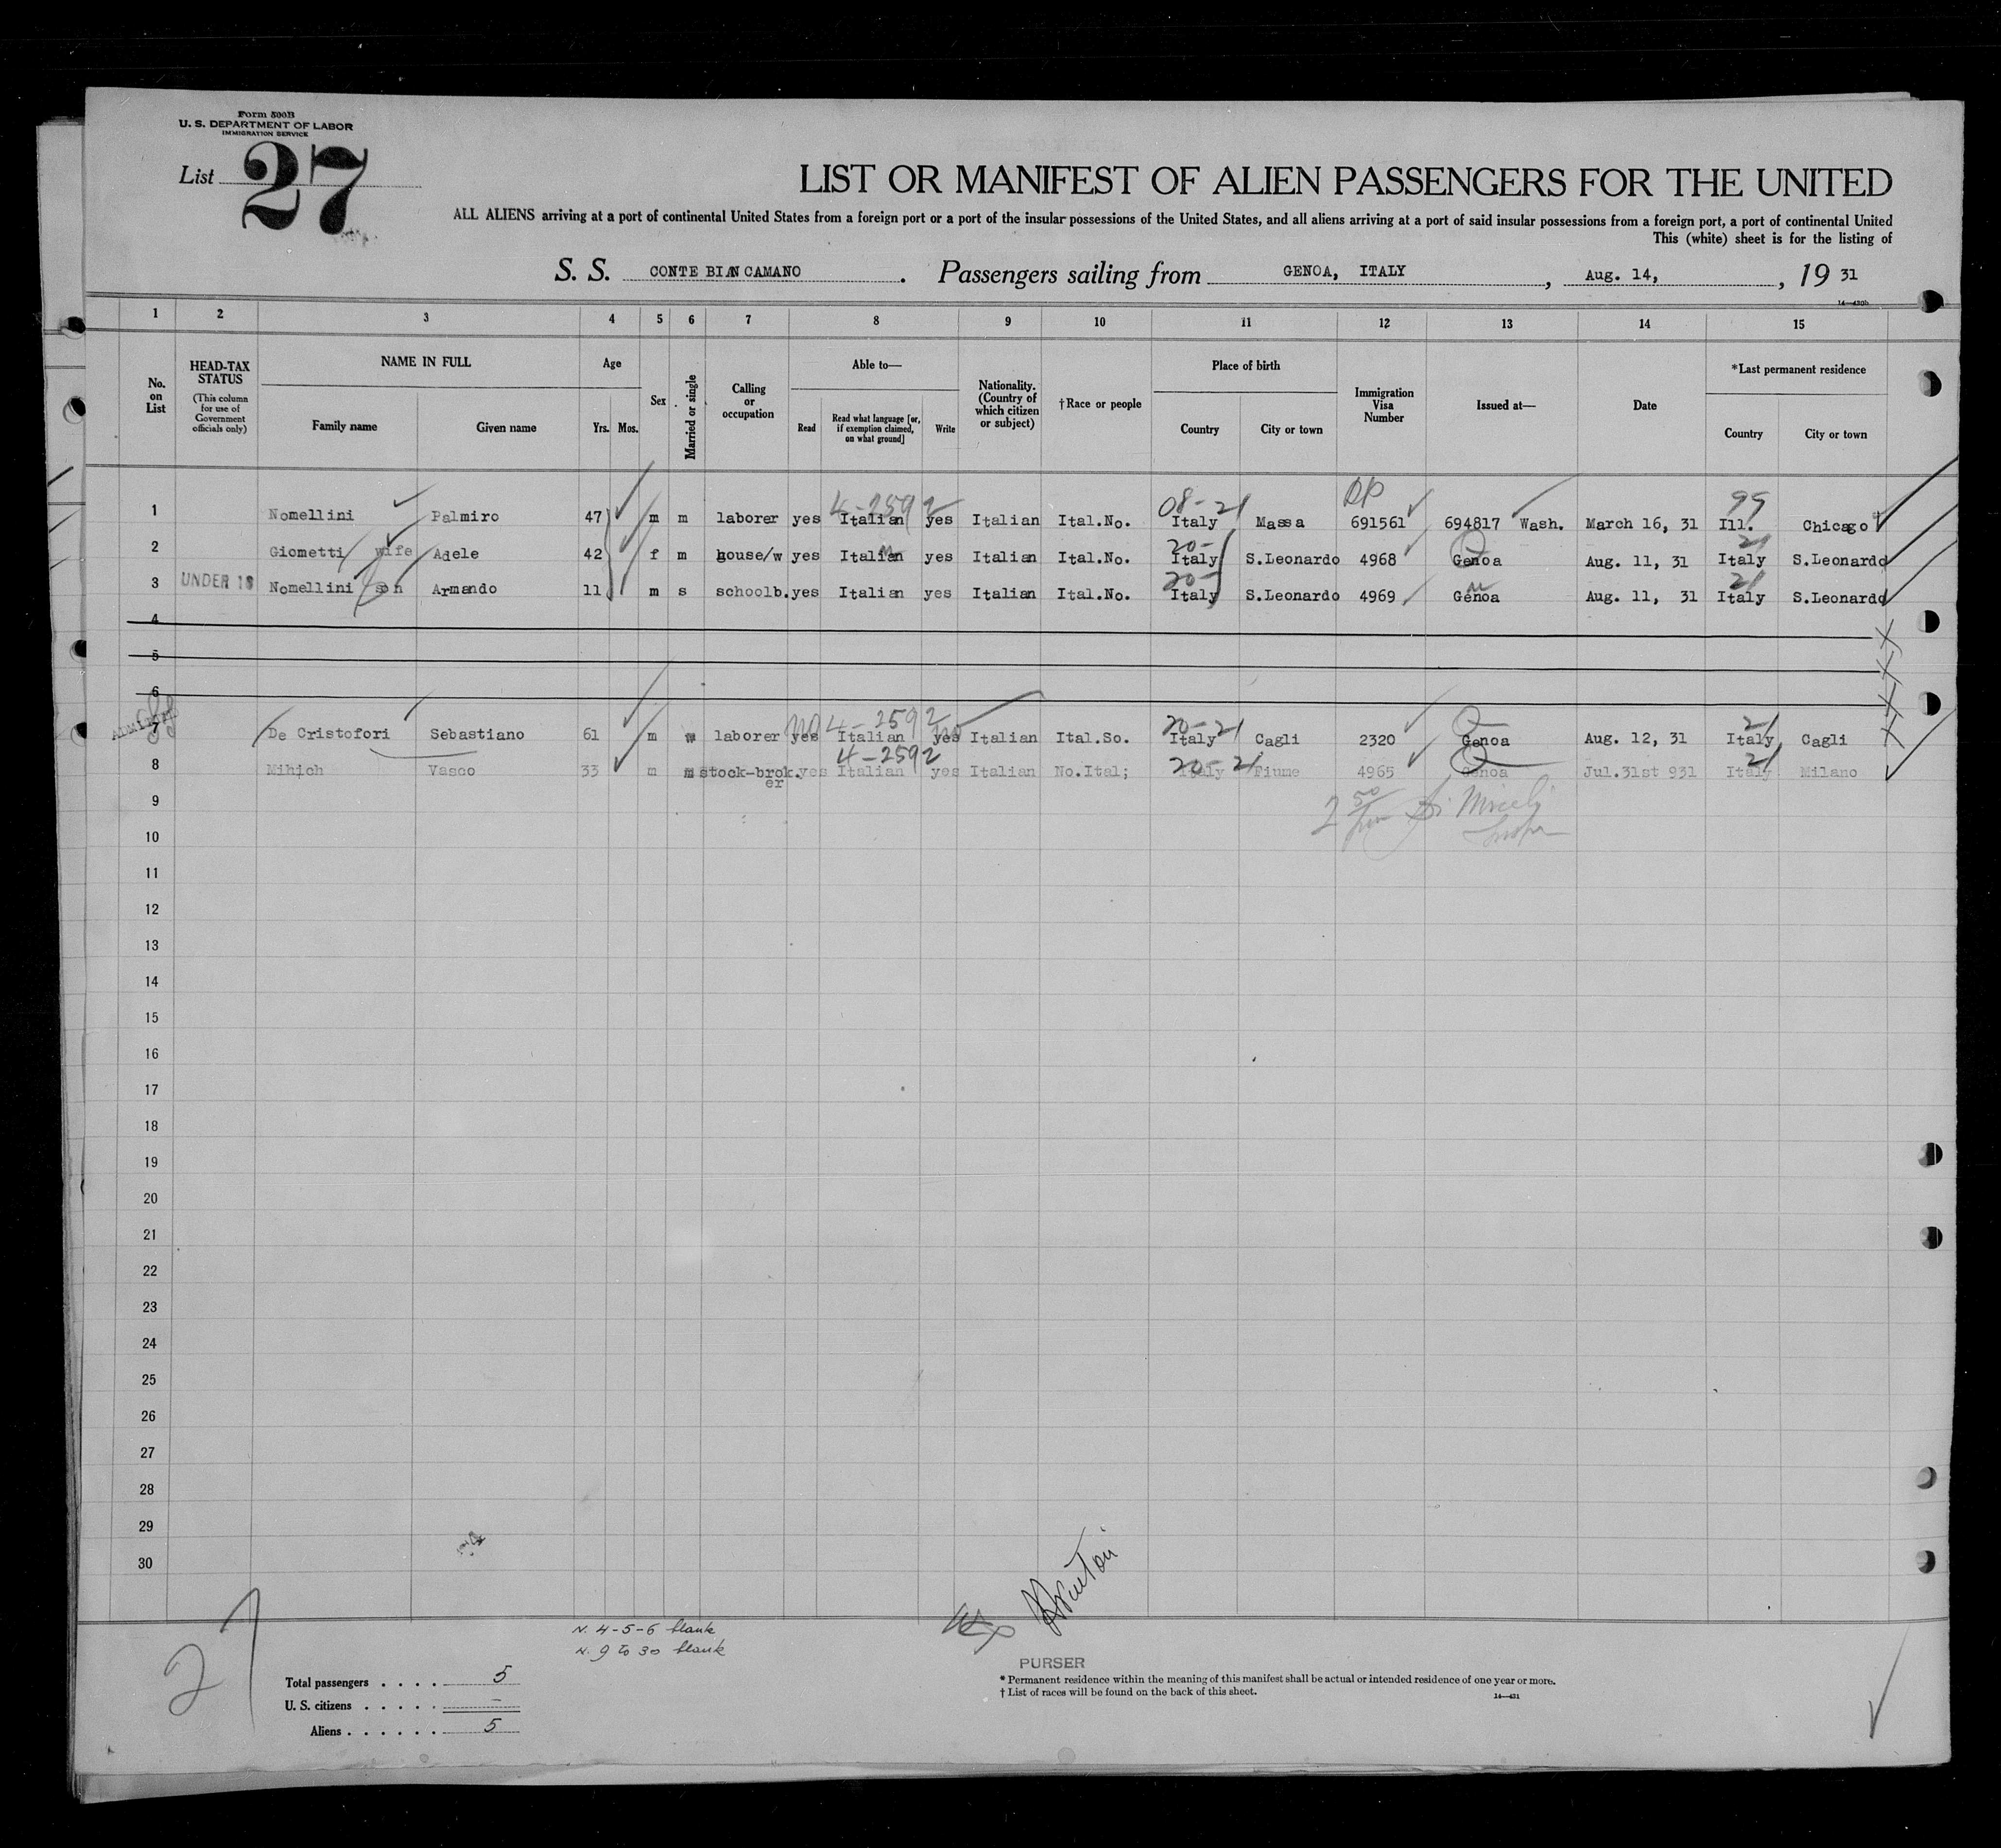 Form 500B
U. S. DEPARTMENT OF LABOR
IMMIGRATION SERVICE
List 27
LIST OR MANIFEST OF ALIEN PASSENGERS FOR THE UNITED
ALL ALIENS arriving at a port of continental United States from a foreign port or a port of the insular possessions of the United States, and all aliens arriving at a port of said insular possessions from a foreign port, a port of continental United
This (white) sheet is for the listing of
S. S. CONTE BIANCAMANO. Passengers sailing from GENOA, ITALY, Aug. 14, 19 31
14—430b
1 2 3 4 5 6 7 8 9 10 11 12 13 14 15
No. on List
HEAD-TAX STATUS
(This column for use of Government officials only)
NAME IN FULL
Family name Given name
Age
Yrs. Mos.
Sex
Married or single
Calling or occupation
Able to—
Read
Read what language [or, if exemption claimed, on what ground]
Write
Nationality. (Country of which citizen or subject)
†Race or people
Place of birth
Country City or town
Immigration Visa Number
Issued at—
Date
*Last permanent residence
Country City or town
4-2592 08-21 99
1 Nomellini Palmiro 47 m m laborer yes Italian yes Italian Ital.No. Italy Massa 691561 694817 Wash. March 16, 31 Ill. Chicago
20- 21
2 Giometti wife Adele 42 f m house/w yes Italian yes Italian Ital.No. Italy S.Leonardo 4968 Genoa Aug. 11, 31 Italy S.Leonardo
20- 21
3 UNDER 16 Nomellini son Armando 11 m s schoolb. yes Italian yes Italian Ital.No. Italy S.Leonardo 4969 Genoa Aug. 11, 31 Italy S.Leonardo
4
5
6
ADMITTED
no 4-2592 no 20-21 21
7 De Cristofori Sebastiano 61 m w laborer yes Italian yes Italian Ital.So. Italy Cagli 2320 Genoa Aug. 12, 31 Italy Cagli
4-2592 20-21 21
8 Mihich Vasco 33 m m stock-broker yes Italian yes Italian No.Ital; Italy Fiume 4965 Genoa Jul.31st 931 Italy Milano
9
10
11
12
13
14
15
16
17
18
19
20
21
22
23
24
25
26
27
28
29
30
27
N. 4-5-6 blank
N. 9 to 30 blank
Total passengers . . . . 5
U. S. citizens . . . . . —
Aliens . . . . . . 5
PURSER
* Permanent residence within the meaning of this manifest shall be actual or intended residence of one year or more.
† List of races will be found on the back of this sheet.
14—431